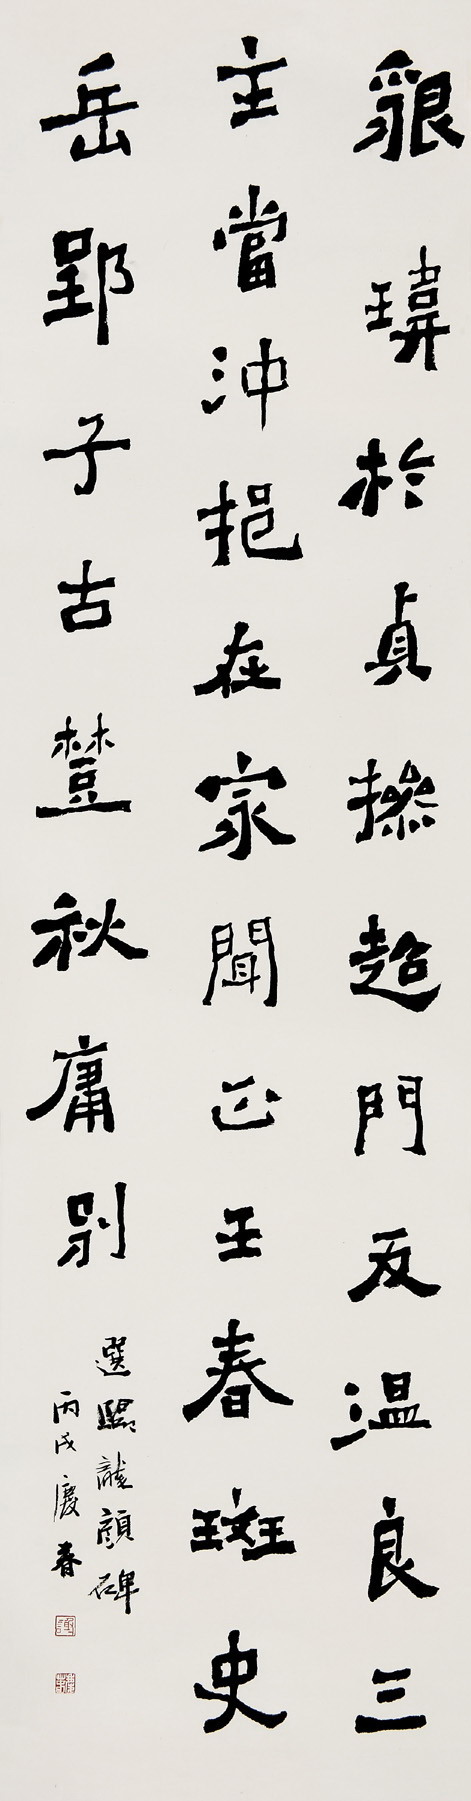 貇瑋於貞操超門友溫良三
主當沖挹在家聞正王春斑史
岳郢子古秋庸别
選臨龍顏碑
丙戌慶春